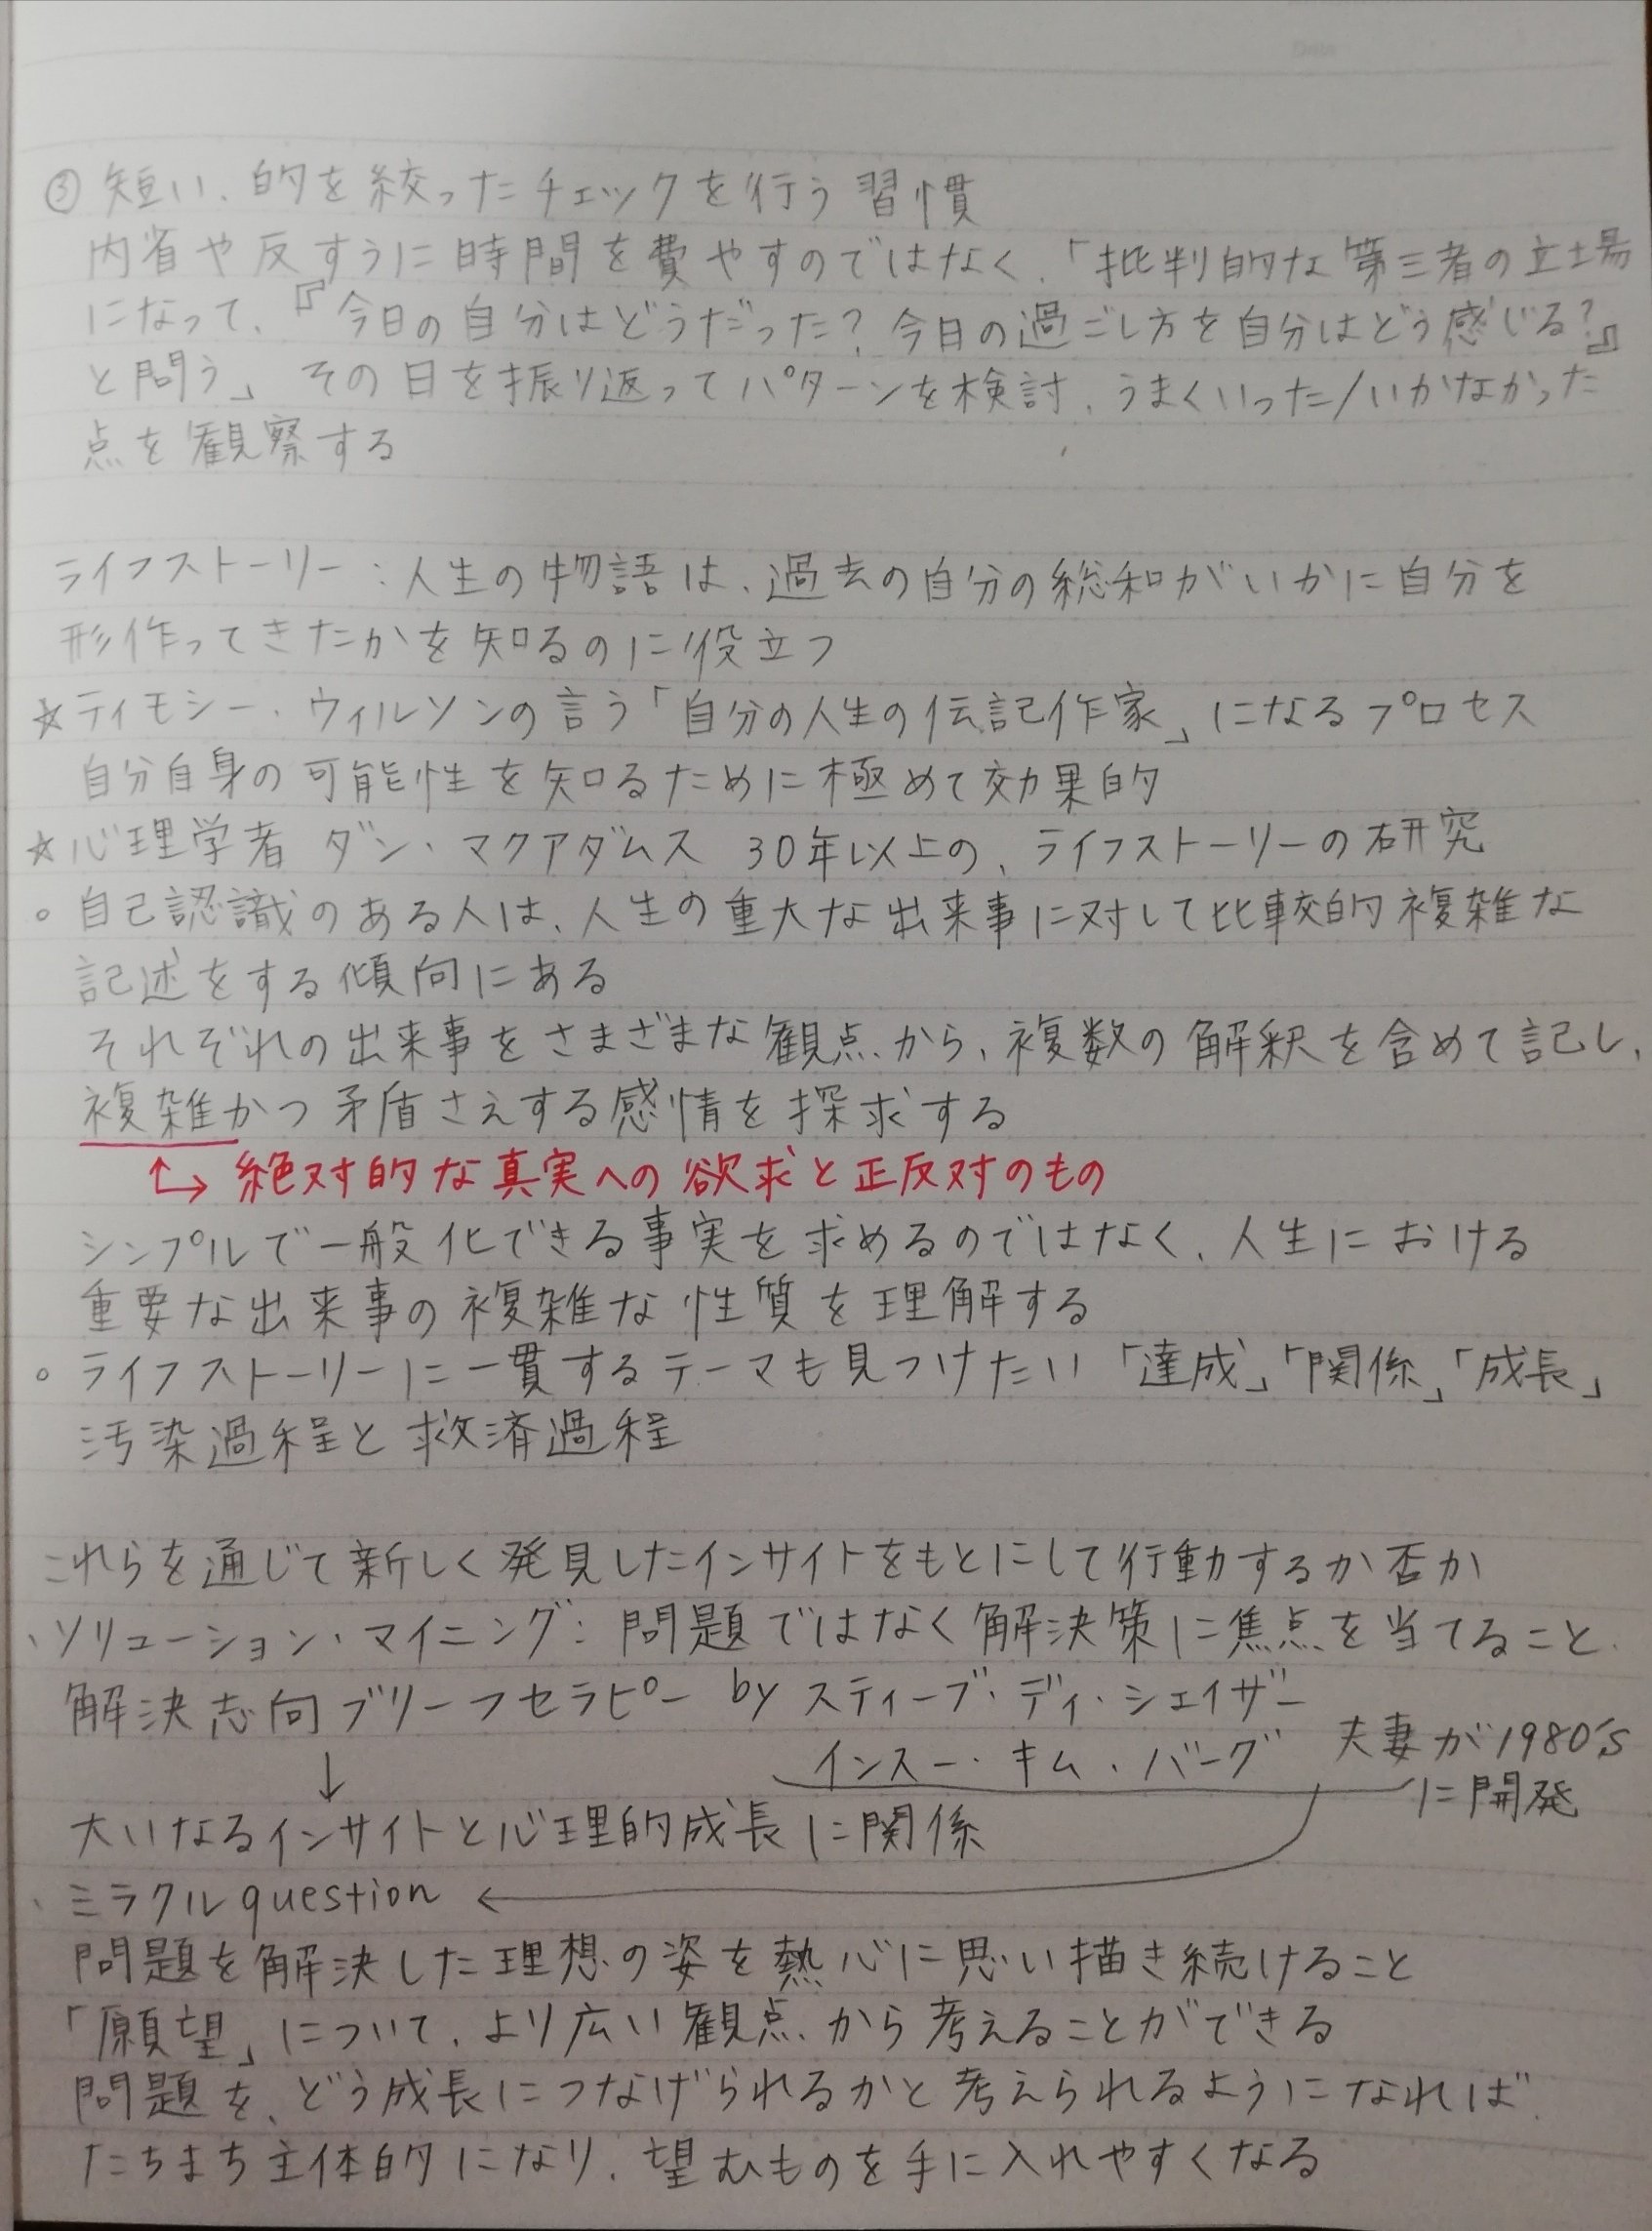 ③ 短い、的を絞ったチェックを行う習慣
内省や反すうに時間を費やすのではなく、「批判的な第三者の立場
になって、『今日の自分はどうだった?今日の過ごし方を自分はどう感じる?』
と問う」 その日を振り返ってパターンを検討、うまくいった/いかなかった
点を観察する
ライフストーリー:人生の物語は、過去の自分の総和がいかに自分を
形作ってきたかを知るのに役立つ
☆ティモシー・ウィルソンの言う「自分の人生の伝記作家」になるプロセス
自分自身の可能性を知るために極めて効果的
☆心理学者 ダン・マクアダムス 30年以上の、ライフストーリーの研究
○ 自己認識のある人は、人生の重大な出来事に対して比較的複雑な
記述をする傾向にある
それぞれの出来事をさまざまな観点から、複数の解釈を含めて記し、
複雑かつ矛盾さえする感情を探求する
↔ 絶対的な真実への欲求と正反対のもの
シンプルで一般化できる事実を求めるのではなく、人生における
重要な出来事の複雑な性質を理解する
○ ライフストーリーに一貫するテーマも見つけたい「達成」「関係」「成長」
汚染過程と救済過程
これらを通じて新しく発見したインサイトをもとにして行動するか否か
、ソリューション・マイニング:問題ではなく解決策に焦点を当てること、
解決志向ブリーフセラピー by スティーブ・ディ・シェイザー
インスー・キム・バーグ 夫妻が1980's
に開発
↓
大いなるインサイトと心理的成長に関係
、ミラクルquestion ←
問題を解決した理想の姿を熱心に思い描き続けること
「願望」について、より広い観点から考えることができる
問題を、どう成長につなげられるかと考えられるようになれば、
たちまち主体的になり、望むものを手に入れやすくなる